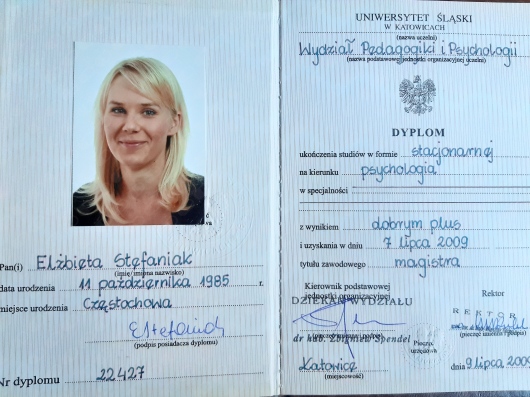 Pan(i) Elżbieta Stefaniak
(imię/imiona nazwisko)
data urodzenia 11 października 1985 r.
miejsce urodzenia Częstochowa
EStefaniak
(podpis posiadacza dyplomu)
Nr dyplomu 22427
UNIWERSYTET ŚLĄSKI
W KATOWICACH
(nazwa uczelni)
Wydział Pedagogiki i Psychologii
(nazwa podstawowej jednostki organizacyjnej uczelni)
DYPLOM
ukończenia studiów w formie stacjonarnej
na kierunku psychologia
w specjalności
z wynikiem dobrym plus
i uzyskania w dniu 7 lipca 2009
tytułu zawodowego magistra
Kierownik podstawowej
jednostki organizacyjnej
DZIEKAN WYDZIAŁU
dr hab. Zbigniew Spendel
Rektor
REKTOR
(pieczęć imienna i podpis)
Pieczęć
urzędowa
Katowice
(miejscowość)
dnia 9 lipca 2009